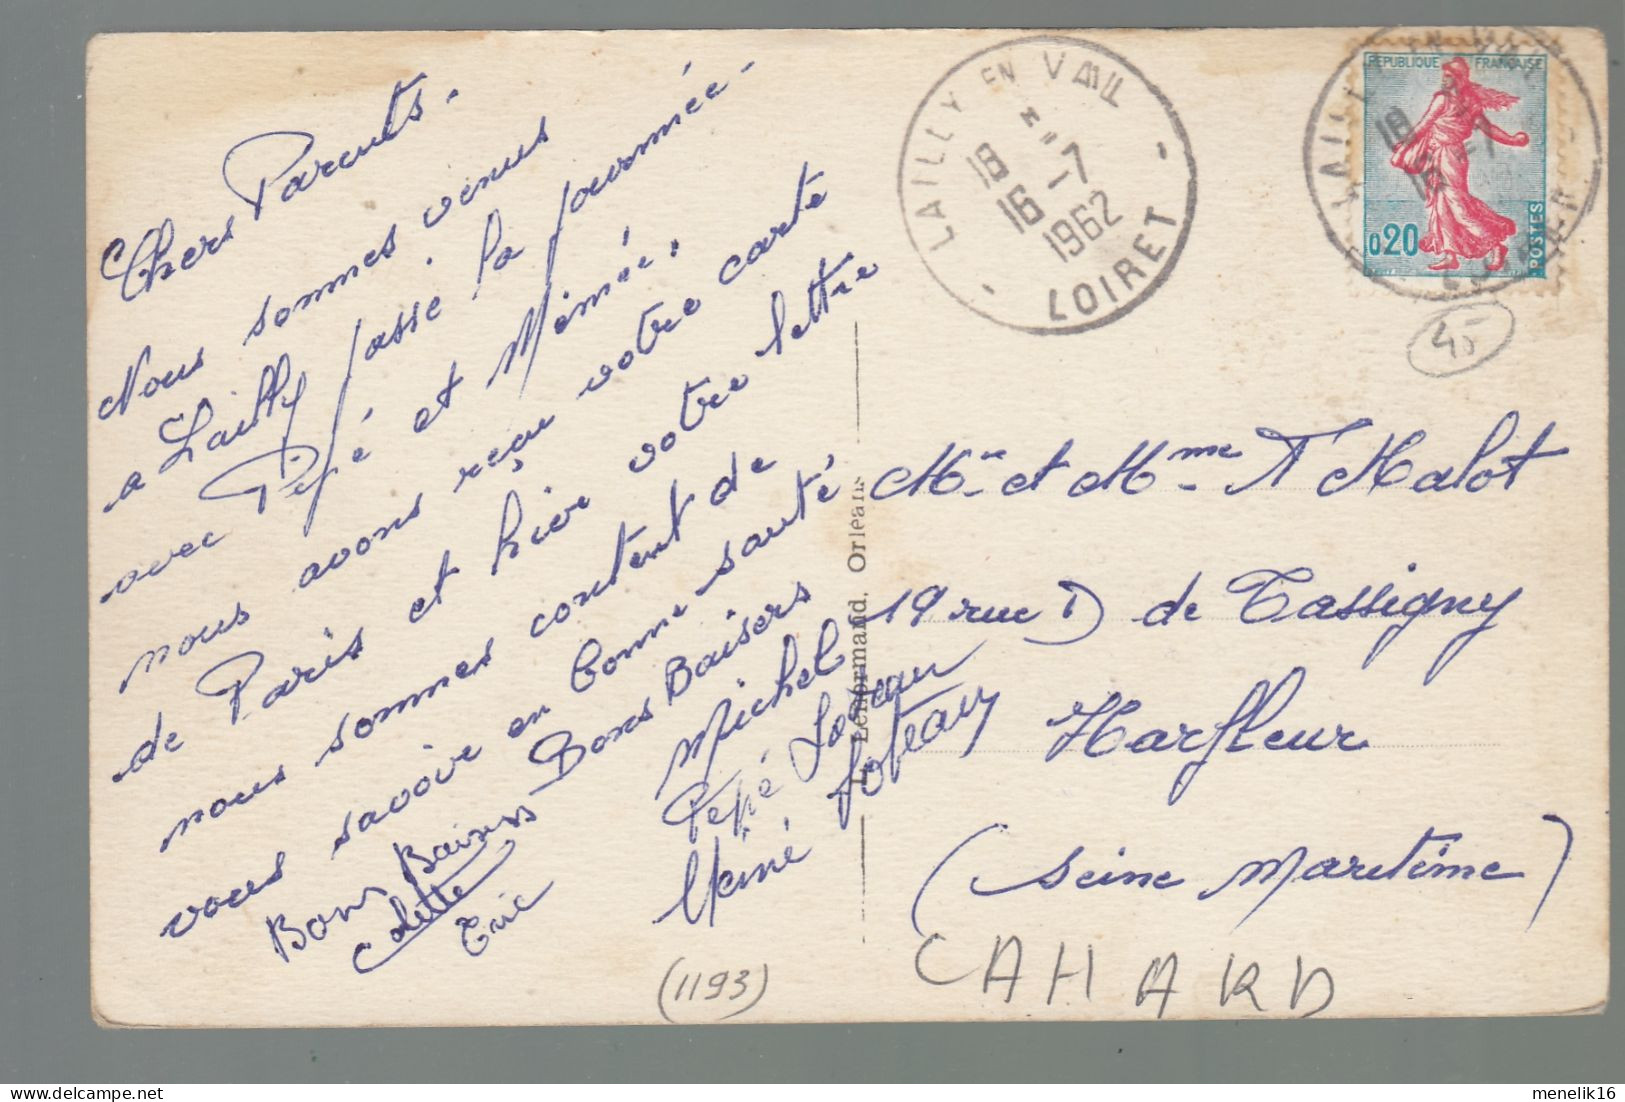 Chers Parents.
Nous sommes venus
a Lailly passé la journée
avec Pépé et Mémée.
nous avons reçu votre carte
de Paris et hier votre lettre
nous sommes content de
vous savoir en bonne santé
Bons Baisers
Michel
Pépé
Mémé
Bons Baisers
Colette
Eric
L. Lenormand. Orléans
LAILLY EN VAL
18 H
16 -7
1962
LOIRET
REPUBLIQUE FRANÇAISE
0,20
POSTES
45
Mr et Mme F Malot
19 rue D de Tassigny
Harfleur
(Seine Maritime)
CAHARD
(1193)
delcampe.net
menelik16